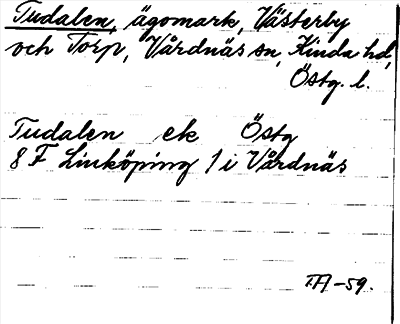 Tudalen, ägomark, Västerby
och Torp, Vårdnäs sn, Kinda hd,
Östg. l.
Tudalen ek Östg
8 F Linköping 1 i Vårdnäs
TA -59.